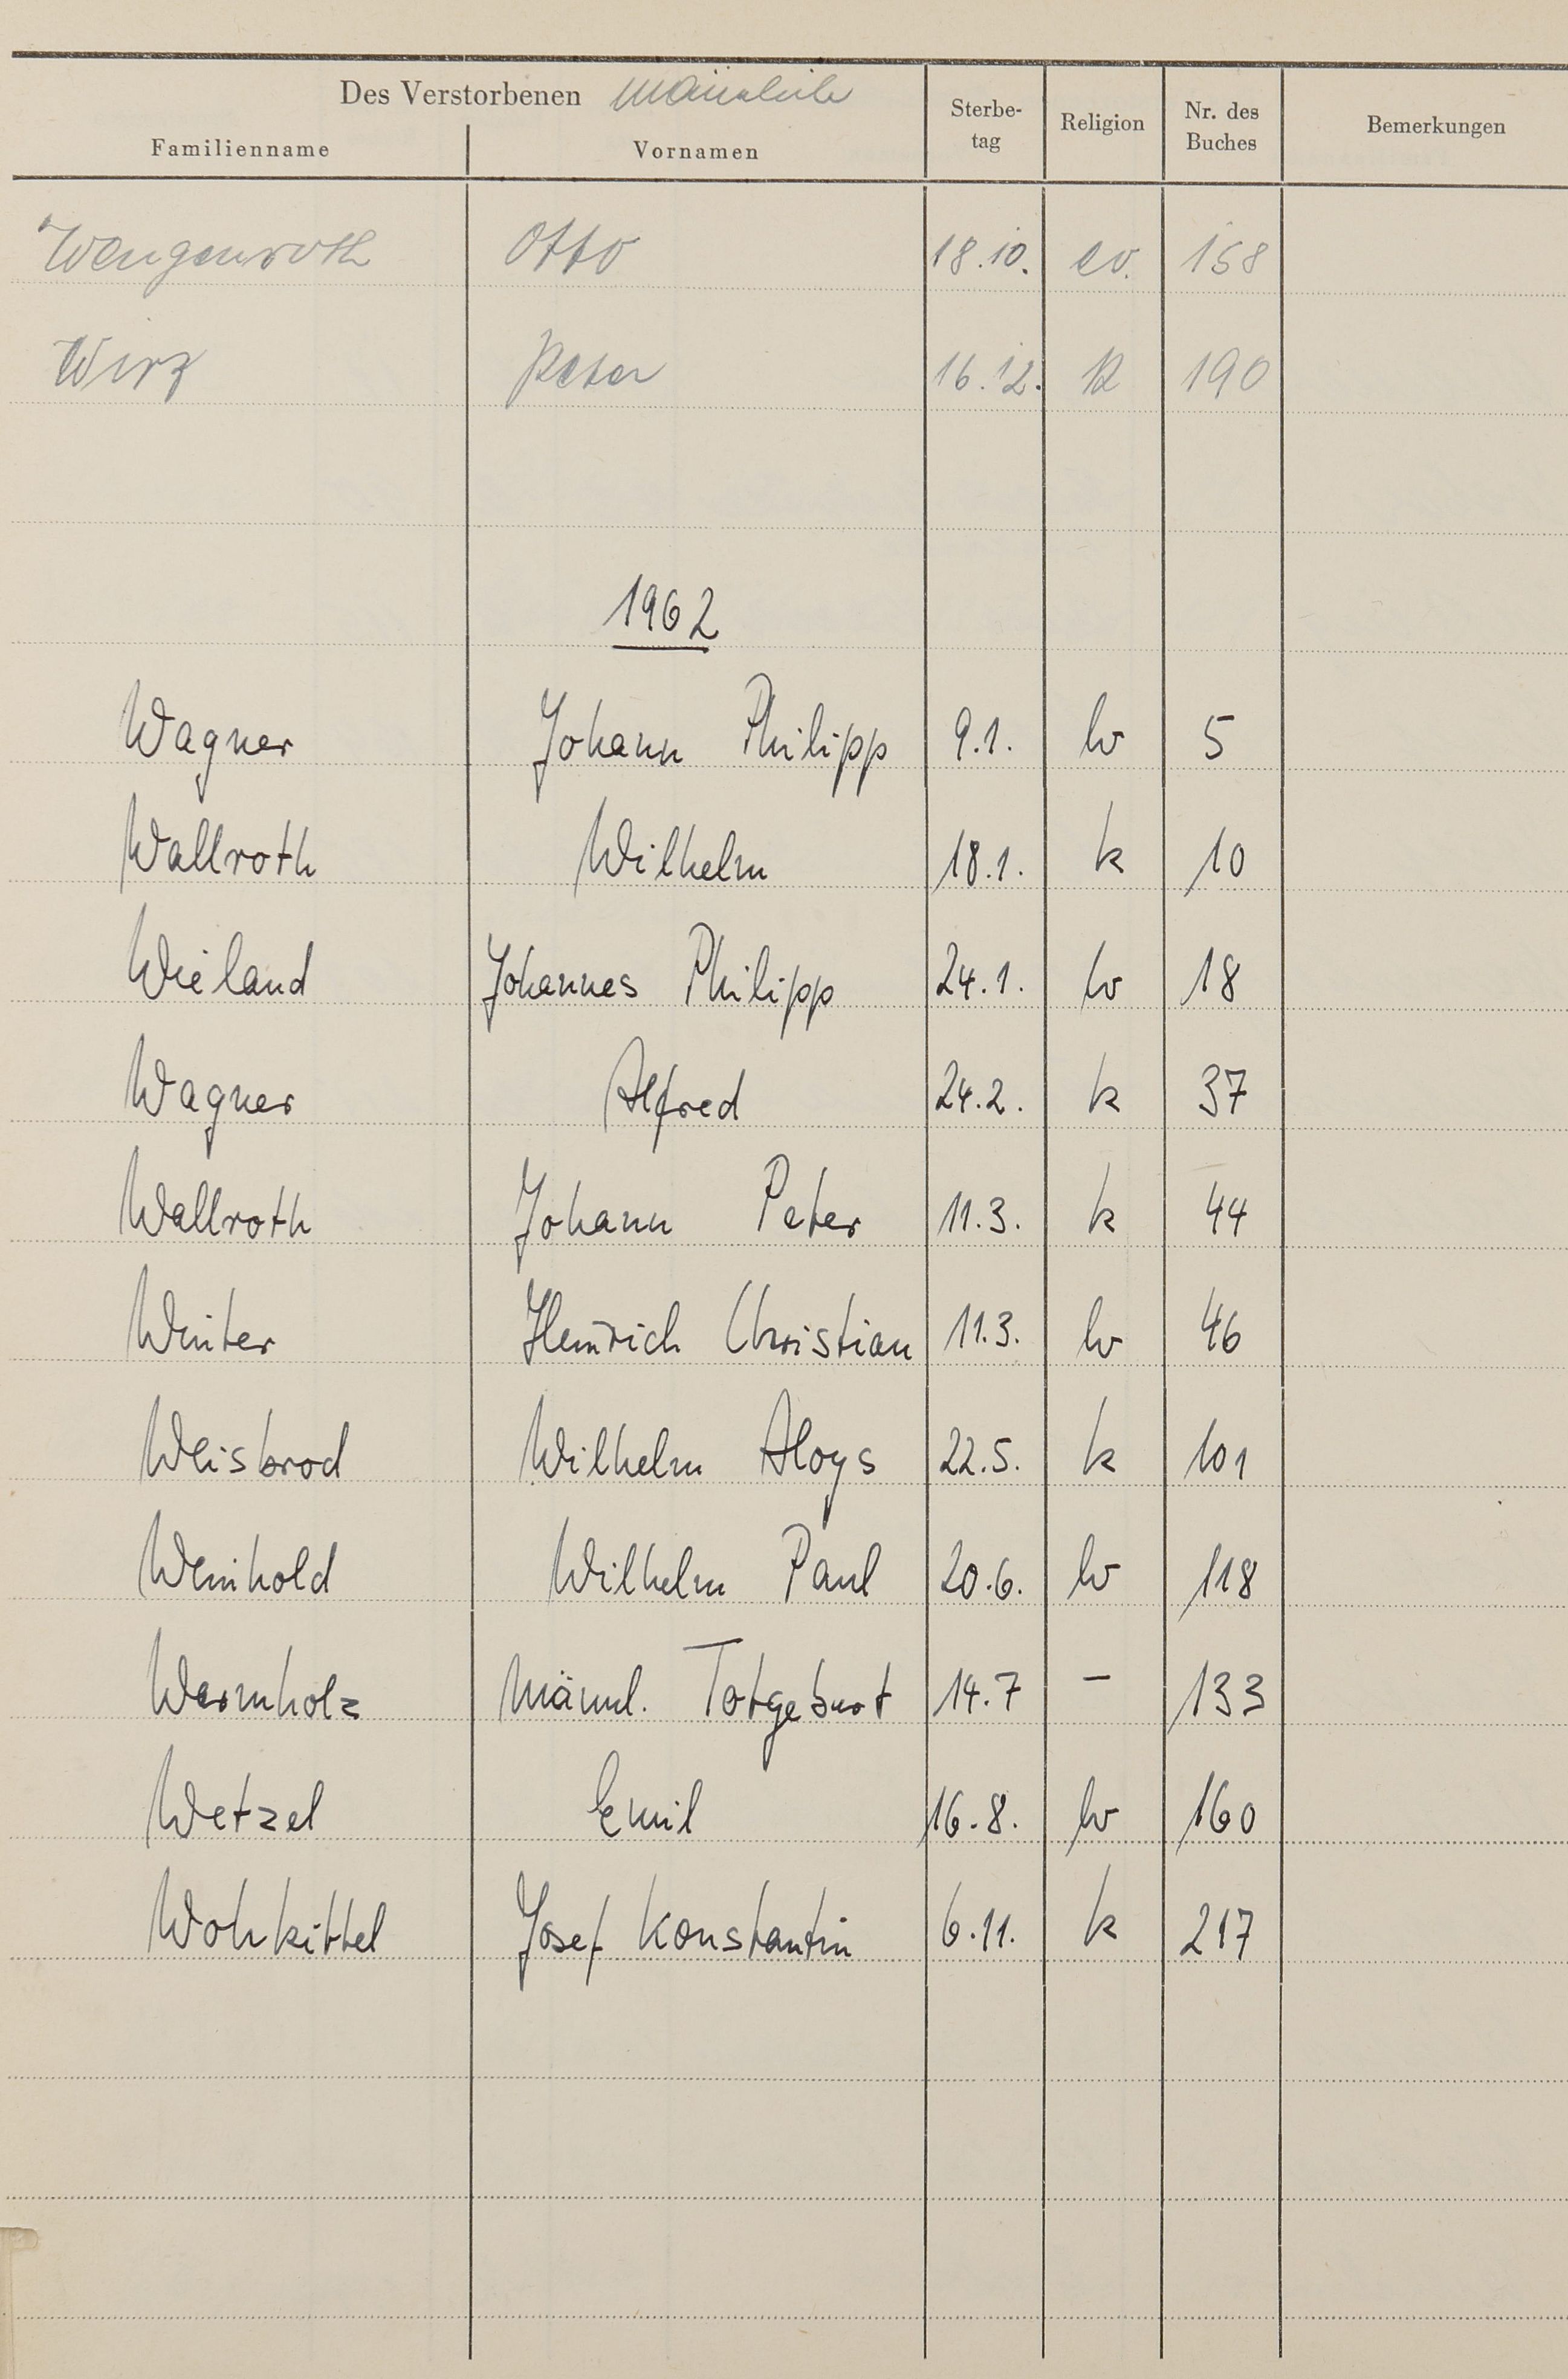 Des Verstorbenen männliche
Familienname Vornamen Sterbe-tag Religion Nr. des Buches Bemerkungen
Wengenroth Otto 18.10. ev. 158
Wirz Peter 16.12. k 190
1962
Wagner Johann Philipp 9.1. lv 5
Wallroth Wilhelm 18.1. k 10
Wieland Johannes Philipp 24.1. lv 18
Wagner Alfred 24.2. k 37
Wallroth Johann Peter 11.3. k 44
Winter Heinrich Christian 11.3. lv 46
Weisbrod Wilhelm Aloys 22.5. k 101
Weinhold Wilhelm Paul 20.6. lv 118
Warmholz Männl. Totgeburt 14.7 - 133
Wetzel Emil 16.8. lv 160
Wohkittel Josef Konstantin 6.11. k 217